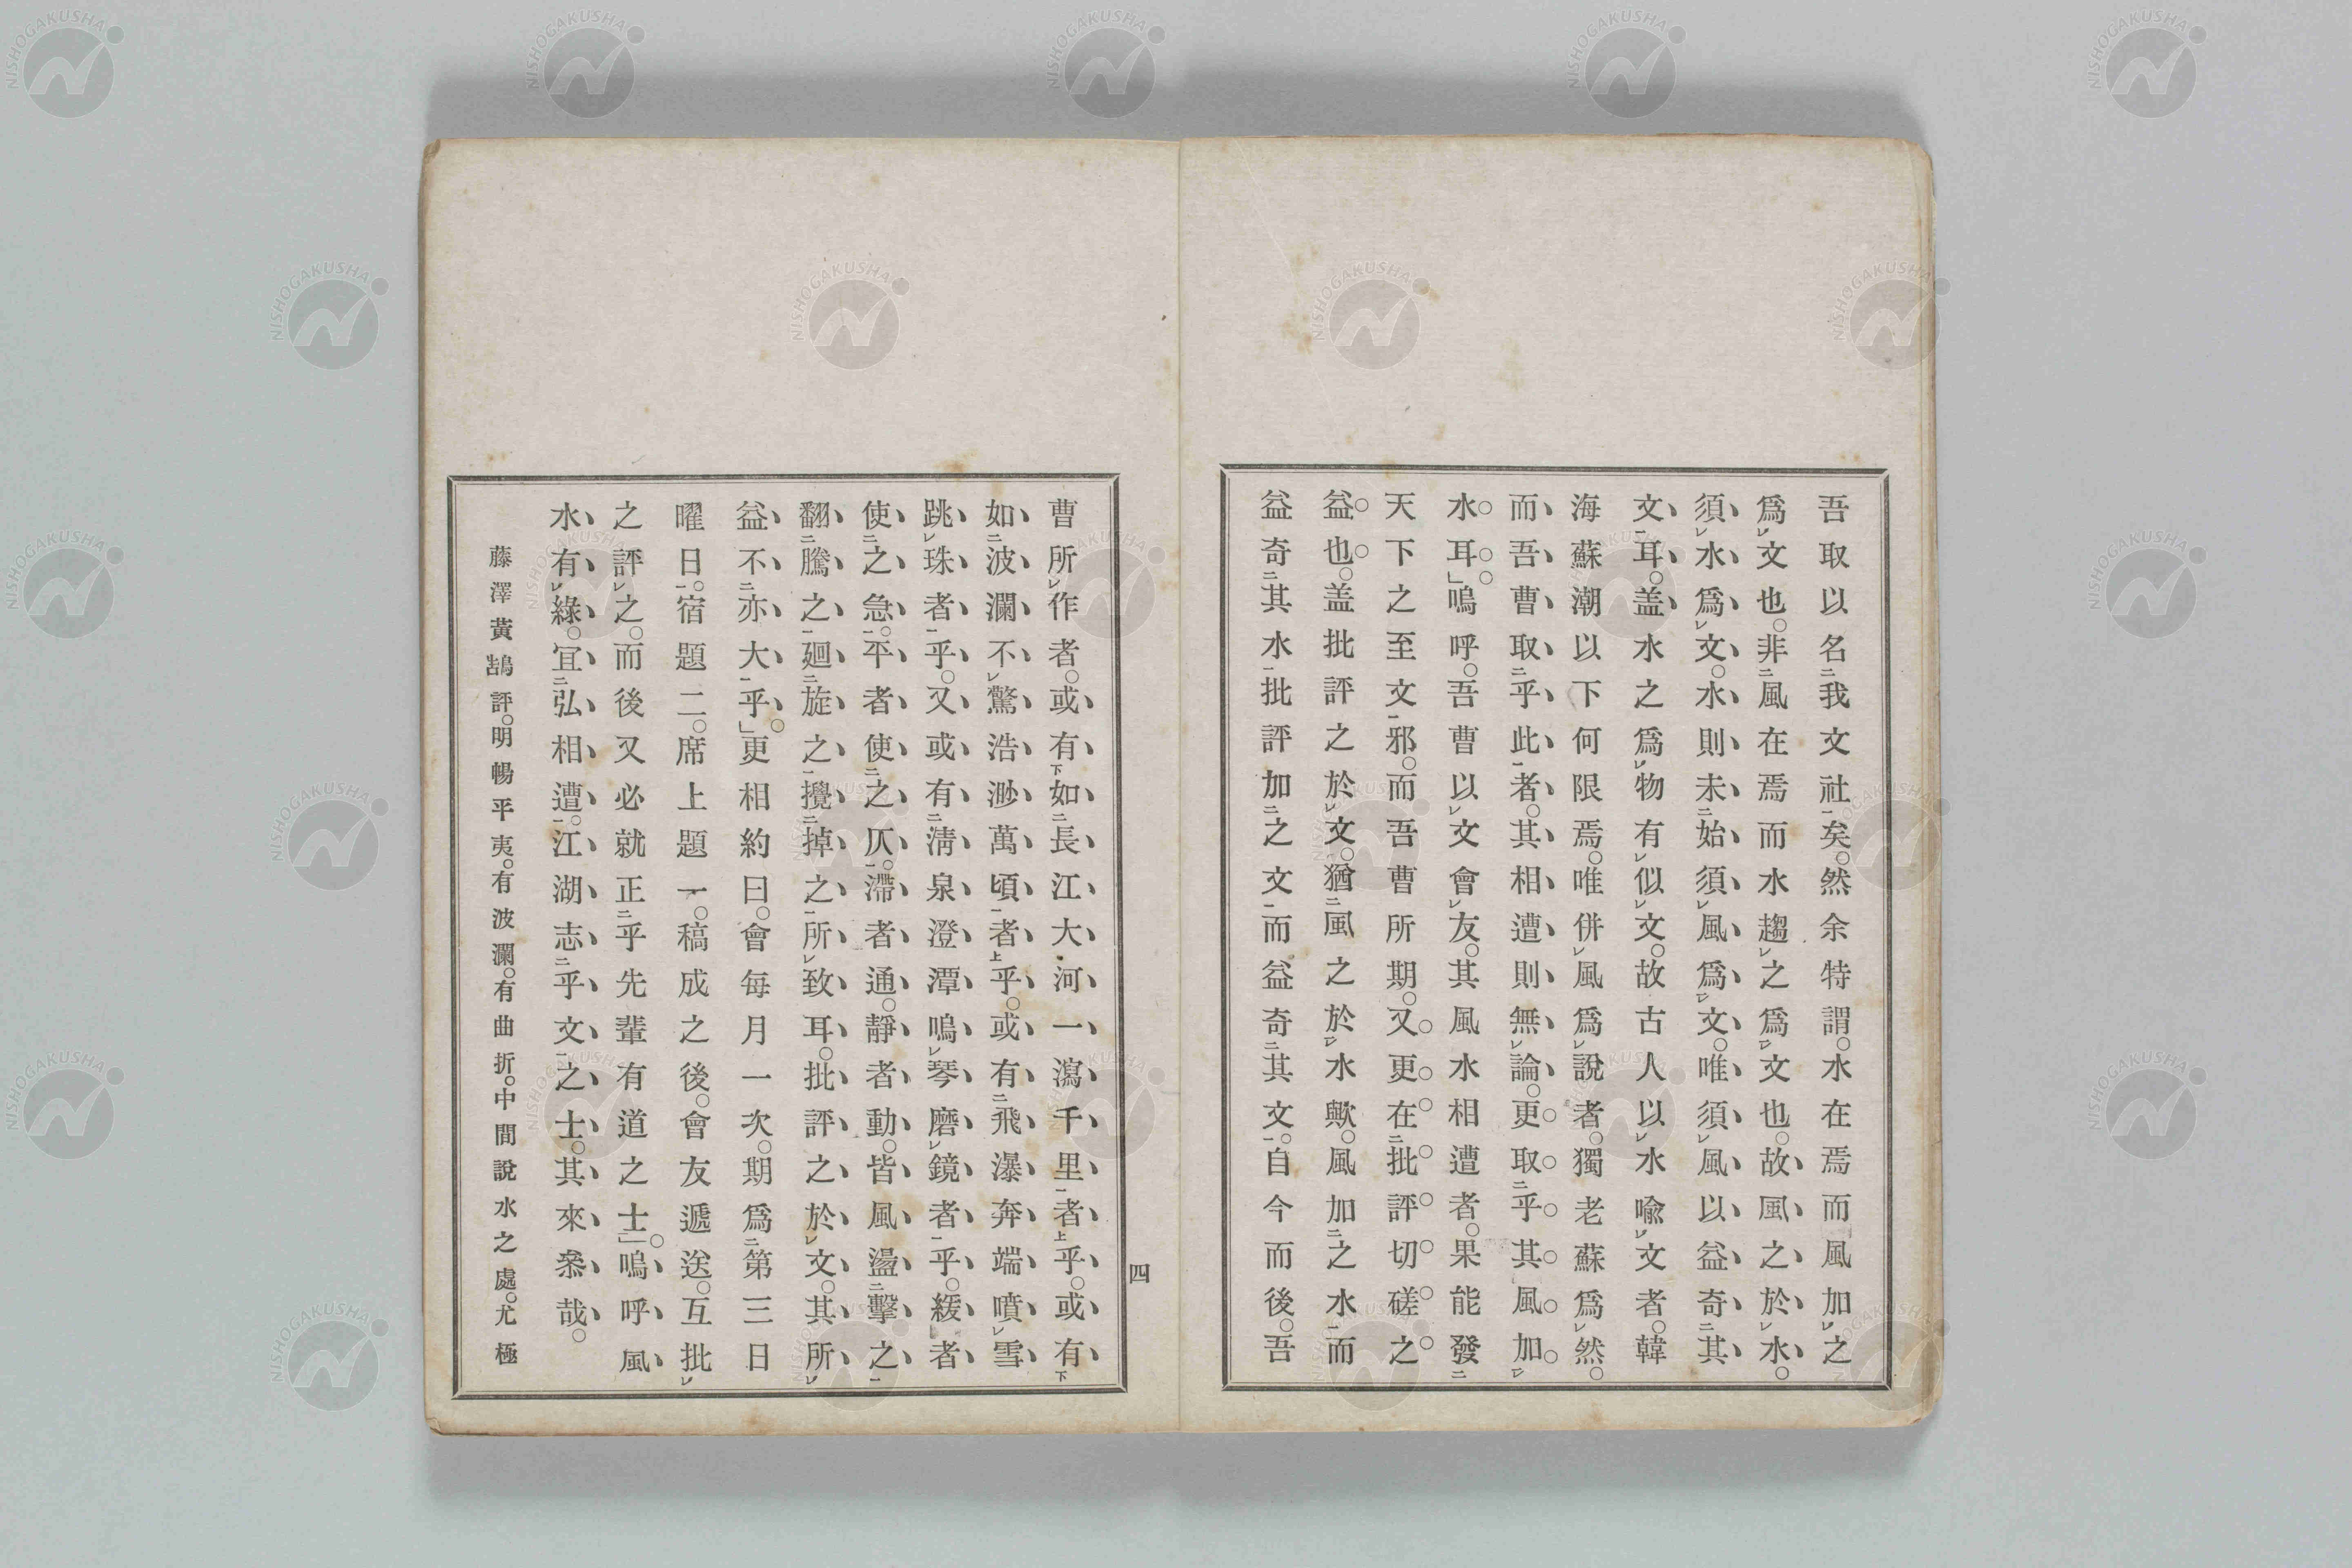 吾取以名我文社矣。然余特謂。水在焉而風加之
爲文也。非風在焉而水趨之爲文也。故風之於水。
須水爲文。水則未始須風爲文。唯須風以益奇其
文耳。蓋水之爲物有似文。故古人以水喩文者。韓
海蘇潮以下何限焉。唯併風爲說者。獨老蘇爲然。
而吾曹取乎此者。其相遭則無論。更取乎其風加
水耳。」嗚呼。吾曹以文會友。其風水相遭者。果能發
天下之至文邪。而吾曹所期。又更在批評切磋之
益也。蓋批評之於文。猶風之於水歟。風加之水而
益奇其水批評加之文而益奇其文。自今而後。吾
曹所作者。或有如長江大河一瀉千里者乎。或有
如波瀾不驚浩渺萬頃者乎。或有飛瀑奔端噴雪
跳珠者乎。又或有淸泉澄潭鳴琴磨鏡者乎。緩者
使之急。平者使之仄。滯者通。靜者動。皆風盪擊之
翻騰之廻旋之攪掉之所致耳。批評之於文。其所
益不亦大乎。」更相約曰。會每月一次。期爲第三日
曜日。宿題二。席上題一。稿成之後。會友遞送。互批
之評之。而後又必就正乎先輩有道之士。」嗚呼風
水有緣。宜弘相遭。江湖志乎文之士。其來叅哉。
藤澤黃鵠評。明暢平夷。有波瀾。有曲折。中間說水之處。尤極
四
NISHOGAKUSHA